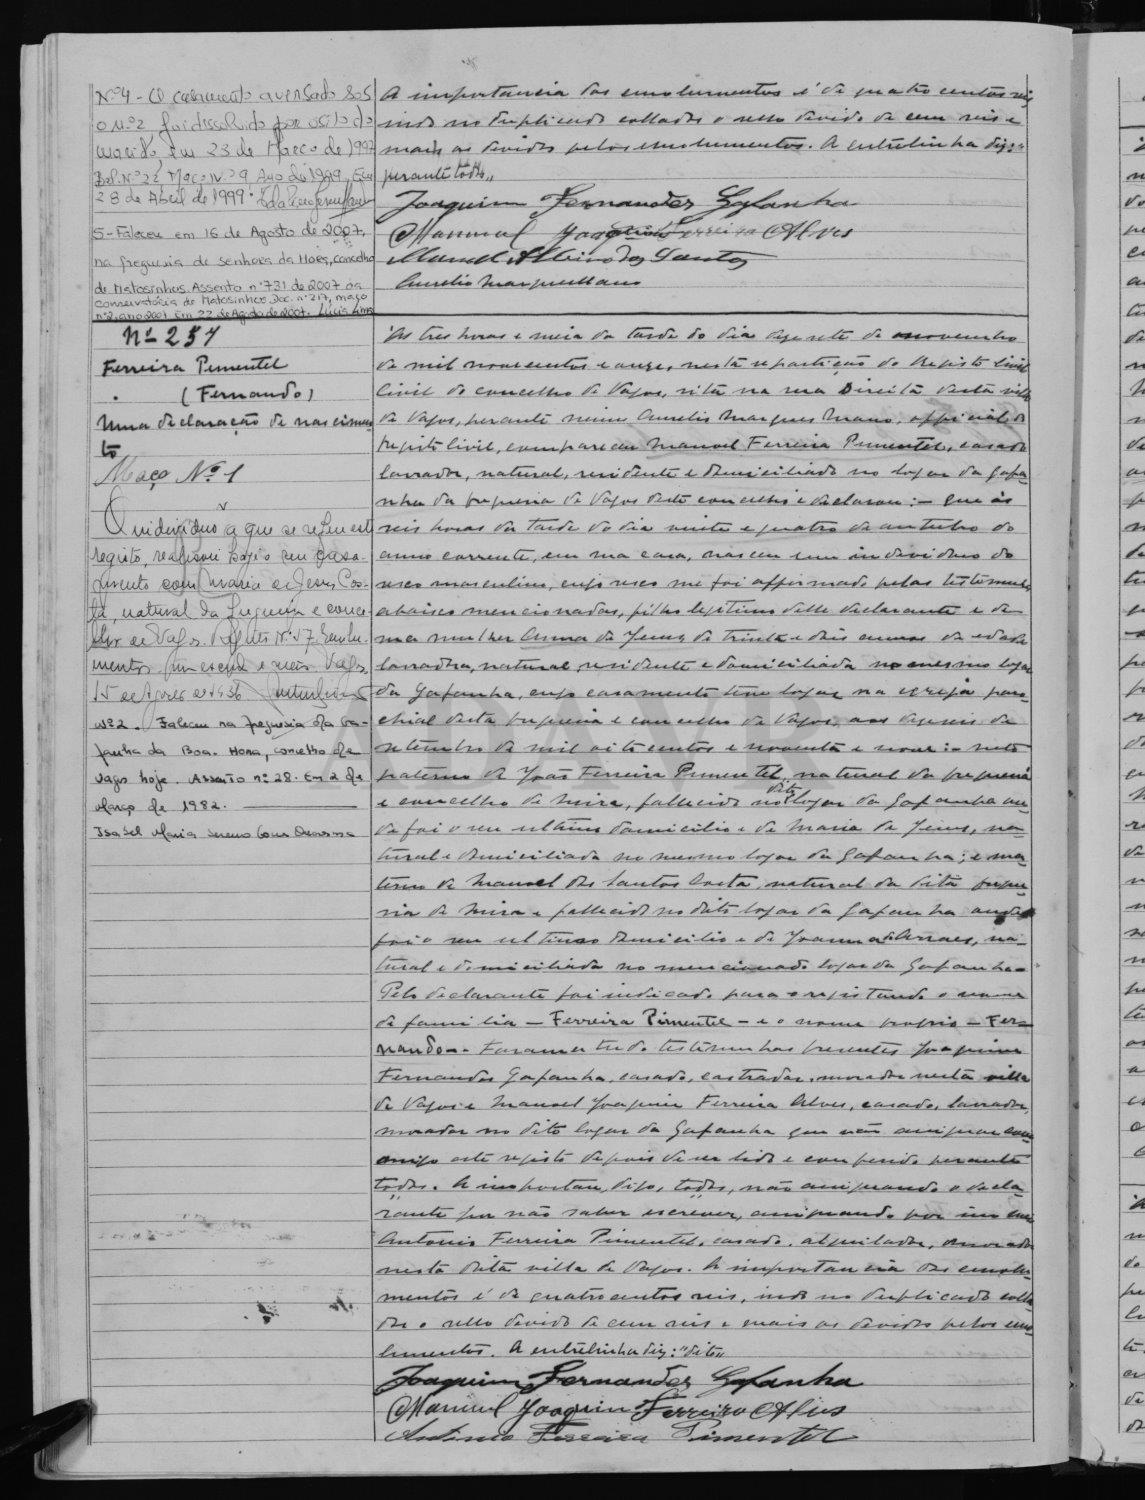 Nº4 - O casamento averbado sob
o Nº2 foi dissolvido por óbito do
marido, em 23 de Março de 1997
Bol. Nº 22 Maço Nº 9 Ano de 1999. Em
28 de Abril de 1999.
5 - Faleceu em 16 de Agosto de 2007,
na freguesia de Senhora da Hora, concelho
de Matosinhos. Assento nº 731 de 2007 da
conservatória de Matosinhos. Doc. nº 217, maço
nº2, ano 2007. Em 22 de Agosto de 2007. Lúcia Lima
A importancia dos emolumentos é de quatro centos reis
indo no duplicado collados o sello devido de cem reis e
mais os devidos pelos emolumentos. A entrelinha diz: "
perante todos"
Joaquim Fernandes Gafanha
Manuel Joaquim Ferreira Alves
Manuel Albino dos Santos
Aurelio Marques Mano
Nº 257
Ferreira Pimentel
(Fernando)
Uma declaração de nascimen-
to
Maço Nº 1
O individuo a que se refere este
registo, realisou hoje o seu casa-
mento com Maria de Jesus Cos-
ta, natural da freguesia e conce-
lho de Vagos. Registo Nº 57
Vagos,
15 de 1936
Nº 2. Faleceu na freguesia da Ga-
fanha da Boa-Hora, concelho de
Vagos hoje. Assento nº 28. Em 2 de
Março de 1982.
Isabel Maria
Ás tres horas e meia da tarde do dia de novembro
de mil novecentos e onze, nesta repartição do Registo Civil
Civil do concelho de Vagos, sita na rua Direita desta villa
de Vagos, perante mim Aurelio Marques Mano, official do
registo civil, compareceu Manuel Ferreira Pimentel, casado
lavrador, natural, residente e domiciliado no logar da Gafa-
nha da freguesia de Vagos deste concelho e declarou: — Que ás
seis horas da tarde do dia vinte e quatro de outubro do
anno corrente, em sua casa, nasceu um individuo do
sexo masculino, cujo sexo me foi affirmado pelas testemunhas
abaixo mencionadas, filho legitimo delle declarante e de
sua mulher Anna de Jesus de trinta e dois annos de edade
lavradora, natural, residente e domiciliada no mesmo logar
da Gafanha, cujo casamento teve logar na egreja paro-
chial desta freguesia e concelho de Vagos, aos dezeseis de
setembro de mil oito centos e noventa e nove: neto
paterno de João Ferreira Pimentel, natural da freguesia
dito
e concelho de Mira, fallecido no logar da Gafanha on-
de foi o seu ultimo domicilio e de Maria de Jesus, na-
tural e domiciliada no mesmo logar da Gafanha; e ma-
terno de Manoel dos Santos Costa, natural da dita fregue-
sia de Mira e fallecido no dito logar da Gafanha onde
foi o seu ultimo domicilio e de Joanna d'Arraes, na-
tural e domiciliada no mencionado logar da Gafanha.
Pelo declarante foi indicado para o registando o nome
de familia — Ferreira Pimentel — e o nome proprio — Fer-
nando —. Foram a tudo testemunhas presentes Joaquim
Fernandes Gafanha, casado, castrador, morador nesta villa
de Vagos e Manuel Joaquim Ferreira Alves, casado, lavrador,
morador no dito logar da Gafanha que vão assignar com-
migo este registo depois de ser lido e conferido perante
todos. A importan, digo, todos, não assignando o decla-
rante por não saber escrever, assignando por
Antonio Ferreira Pimentel, casado, alquilador, morador
nesta dita villa de Vagos. A importancia dos emolu-
mentos é de quatrocentos reis, indo no duplicado colla-
do o sello devido de cem reis e mais os devidos pelos emo-
lumentos. A entrelinha diz: "dito"
Joaquim Fernandes Gafanha
Manuel Joaquim Ferreira Alves
Antonio Ferreira Pimentel
ADAVR